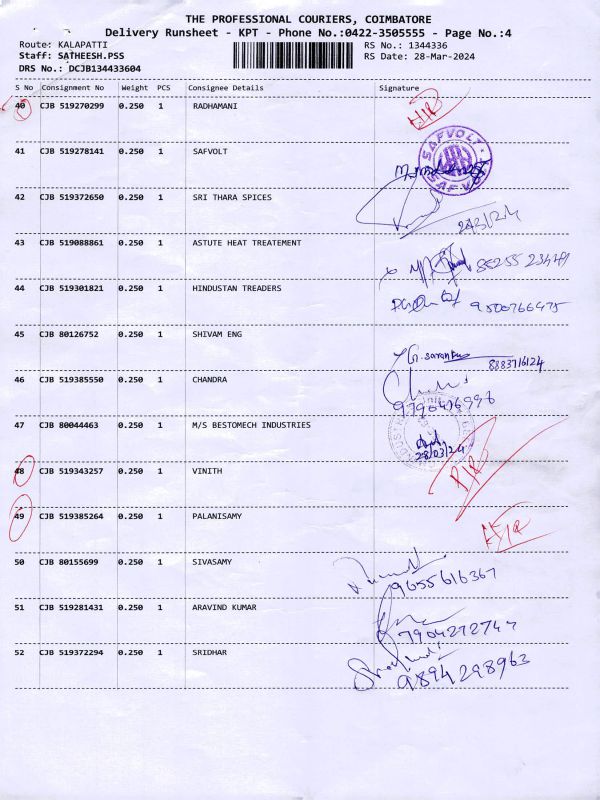 THE PROFESSIONAL COURIERS, COIMBATORE
Delivery Runsheet - KPT - Phone No.:0422-3505555 - Page No.:4
Route: KALAPATTI RS No.: 1344336
Staff: SATHEESH.PSS RS Date: 28-Mar-2024
DRS No.: DCJB134433604
S No Consignment No Weight PCS Consignee Details Signature
40 CJB 519270299 0.250 1 RADHAMANI
41 CJB 519278141 0.250 1 SAFVOLT
SAFVOLT
42 CJB 519372650 0.250 1 SRI THARA SPICES
43 CJB 519088861 0.250 1 ASTUTE HEAT TREATEMENT
44 CJB 519301821 0.250 1 HINDUSTAN TREADERS
9500766475
45 CJB 80126752 0.250 1 SHIVAM ENG
8883716124
46 CJB 519385550 0.250 1 CHANDRA
9790416998
47 CJB 80044463 0.250 1 M/S BESTOMECH INDUSTRIES
28/03/24
48 CJB 519343257 0.250 1 VINITH
49 CJB 519385264 0.250 1 PALANISAMY
50 CJB 80155699 0.250 1 SIVASAMY
9655616367
51 CJB 519281431 0.250 1 ARAVIND KUMAR
52 CJB 519372294 0.250 1 SRIDHAR
9894298963